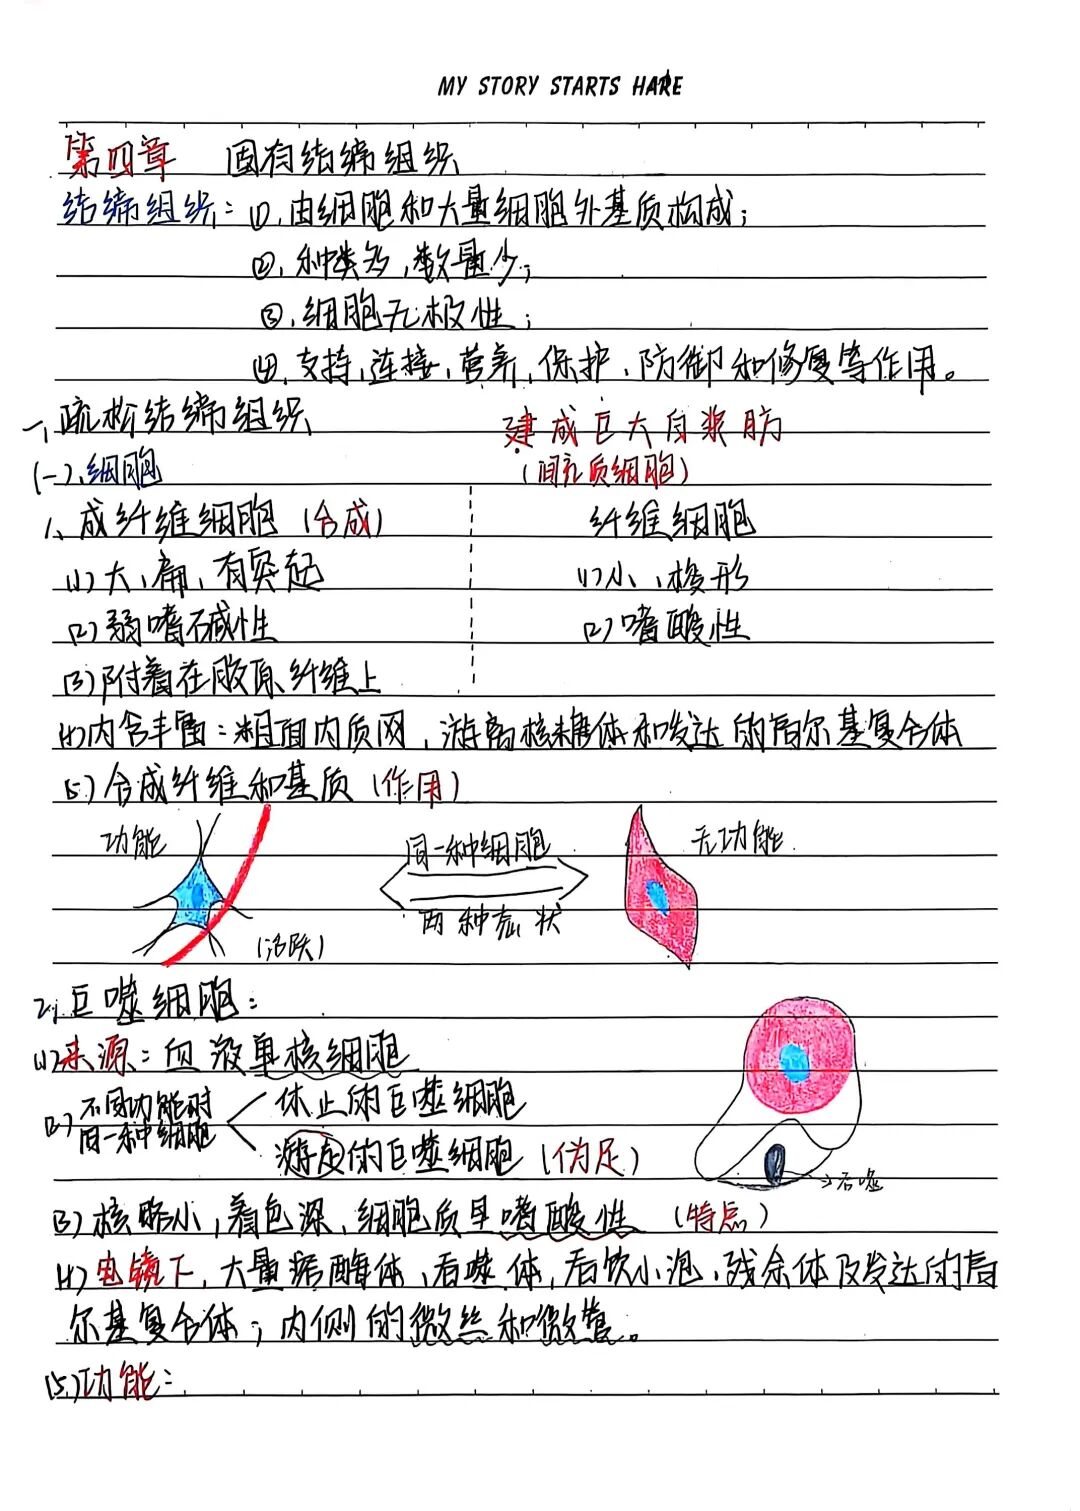 MY STORY STARTS HARE
第四章 固有结缔组织
结缔组织：①、由细胞和大量细胞外基质构成；
②、种类多，数量少；
③、细胞无极性；
④、支持，连接，营养，保护、防御和修复等作用。
一、疏松结缔组织 建成巨大自浆肪
(一)、细胞 (间充质细胞)
1、成纤维细胞 (合成) 纤维细胞
(1)大、扁，有突起 (1)小、梭形
(2)弱嗜碱性 (2)嗜酸性
(3)附着在胶原纤维上
(4)内含丰富：粗面内质网，游离核糖体和发达的高尔基复合体
(5)合成纤维和基质 (作用)
功能 同一种细胞 无功能
两种症状
(活跃)
2、巨噬细胞：
(1)来源：血液单核细胞
(2)不同功能时同一种细胞 休止的巨噬细胞
游走的巨噬细胞 (伪足)
→吞噬
(3)核略小，着色深，细胞质呈嗜酸性 (特点)
(4)电镜下，大量溶酶体，吞噬体，吞饮小泡、残余体及发达的高
尔基复合体；内侧的微丝和微管。
(5)功能：